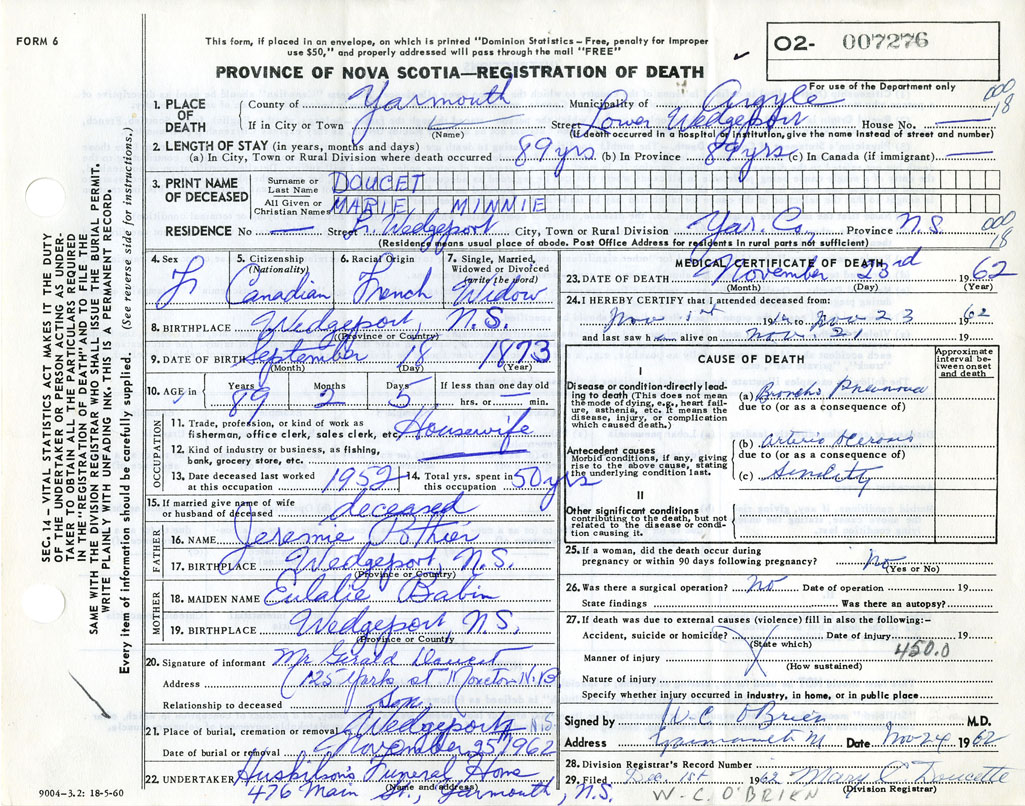 FORM 6
This form, if placed in an envelope, on which is printed "Dominion Statistics – Free, penalty for improper
use $50," and properly addressed will pass through the mail "FREE"
PROVINCE OF NOVA SCOTIA—REGISTRATION OF DEATH
O2- 007276
For use of the Department only
000
18
1. PLACE OF DEATH
County of Yarmouth Municipality of Argyle
If in City or Town — Street Lower Wedgeport House No. —
(Name) (If death occurred in a hospital or institution, give the name instead of street and number)
2. LENGTH OF STAY (in years, months and days)
(a) In City, Town or Rural Division where death occurred 89 yrs (b) In Province 89 yrs (c) In Canada (if immigrant) —
3. PRINT NAME OF DECEASED
Surname or Last Name DOUCET
All Given or Christian Names MARIE MINNIE
RESIDENCE No — Street Lr. Wedgeport City, Town or Rural Division Yar. Co. Province N.S.
(Residence means usual place of abode. Post Office Address for residents in rural parts not sufficient)
000
18
4. Sex
5. Citizenship (Nationality) Canadian
6. Racial Origin French
7. Single, Married, Widowed or Divorced (write the word) Widow
8. BIRTHPLACE Wedgeport, N.S.
(Province or Country)
9. DATE OF BIRTH September 18 1873
(Month) (Day) (Year)
10. AGE in Years 89 Months 2 Days 5 If less than one day old — hrs. or — min.
OCCUPATION
11. Trade, profession, or kind of work as
fisherman, office clerk, sales clerk, etc. Housewife
12. Kind of industry or business, as fishing,
bank, grocery store, etc.
13. Date deceased last worked at this occupation 1952
14. Total yrs. spent in this occupation 50 yrs
15. If married give name of wife or husband of deceased deceased
FATHER
16. NAME Jeremie Pothier
17. BIRTHPLACE Wedgeport, N.S.
(Province or Country)
MOTHER
18. MAIDEN NAME Eulalie Babin
19. BIRTHPLACE Wedgeport, N.S.
(Province or Country
20. Signature of informant Mr Gerald Doucet
Address 125 York st Moncton N.B
Relationship to deceased Son,
21. Place of burial, cremation or removal Wedgeport, N.S.
Date of burial or removal November 25 1962
22. UNDERTAKER Huskilson's Funeral Home
(Name and address)
476 Main St., Yarmouth, N.S.
9004–3.2: 18-5-60
MEDICAL CERTIFICATE OF DEATH
23. DATE OF DEATH November 23rd 1962
(Month) (Day) (Year)
24. I HEREBY CERTIFY that I attended deceased from:
Nov 1st to Nov 23 1962
and last saw h alive on Nov. 21 19
CAUSE OF DEATH
Approximate interval between onset and death
I
Disease or condition directly leading to death (This does not mean the mode of dying, e.g., heart failure, asthenia, etc. It means the disease, injury, or complication which caused death.)
(a) Broncho Pneumonia
due to (or as a consequence of)
Antecedent causes
Morbid conditions, if any, giving rise to the above cause, stating the underlying condition last.
(b) Arterio Sclerosis
due to (or as a consequence of)
(c) Senility
II
Other significant conditions
contributing to the death, but not related to the disease or condition causing it.
25. If a woman, did the death occur during
pregnancy or within 90 days following pregnancy? No
(Yes or No)
26. Was there a surgical operation? no Date of operation 19
State findings Was there an autopsy?
27. If death was due to external causes (violence) fill in also the following:–
Accident, suicide or homicide? Date of injury 19
(State which) 450.0
Manner of injury
(How sustained)
Nature of injury
Specify whether injury occurred in industry, in home, or in public place
Signed by W.C. O'Brien M.D.
Address Yarmouth Date Nov 24 1962
28. Division Registrar's Record Number
29. Filed Dec. 1st 1962 Mary C Doucette
(Division Registrar)
W.C. O'BRIEN
SEC. 14 – VITAL STATISTICS ACT MAKES IT THE DUTY
OF THE UNDERTAKER OR PERSON ACTING AS UNDER-
TAKER TO OBTAIN ALL THE PARTICULARS REQUIRED
IN THE "REGISTRATION OF DEATH" AND TO FILE THE
SAME WITH THE DIVISION REGISTRAR WHO SHALL ISSUE THE BURIAL PERMIT.
WRITE PLAINLY WITH UNFADING INK. THIS IS A PERMANENT RECORD.
Every item of information should be carefully supplied. (See reverse side for instructions.)